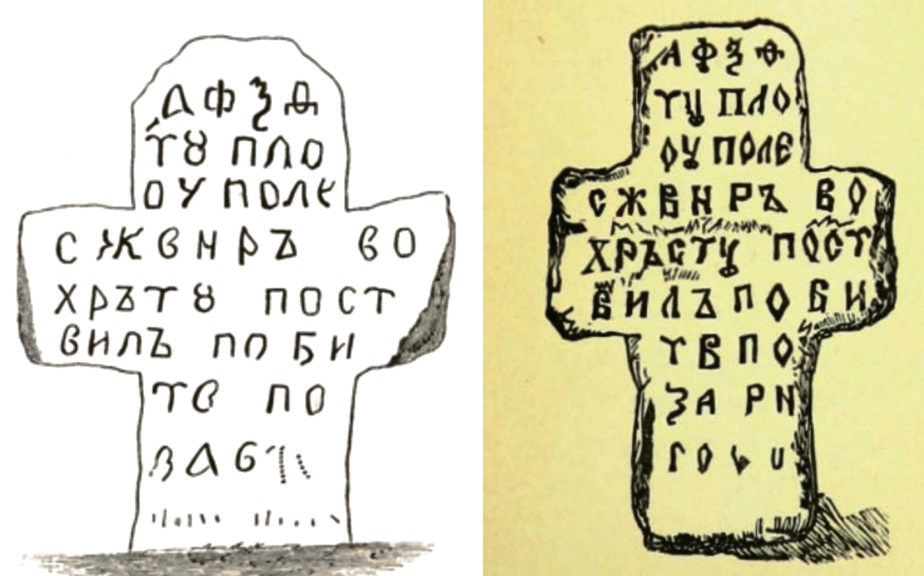 АФѮѲ
ТꙊ ПЛО
ОУ ПОЛЕ
СЖВНРЪ ВО
ХРЪТꙊ ПОСТ
ВИЛЪ ПО БИ
ТВ ПО
АФѮѲ
ТУ ПЛО
ОУ ПОЛЕ
СЖВНРЪ ВО
ХРЪСТУ ПОСТ
ВИЛЪ ПО БИ
ТВ ПО
ЗА РН